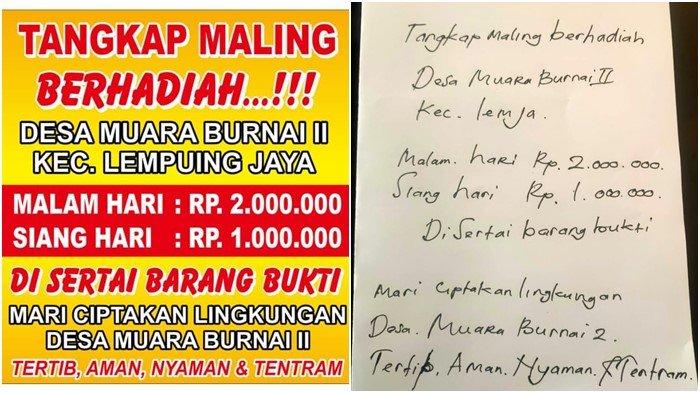 TANGKAP MALING
BERHADIAH...!!!
DESA MUARA BURNAI II
KEC. LEMPUING JAYA
MALAM HARI : RP. 2.000.000
SIANG HARI : RP. 1.000.000
DI SERTAI BARANG BUKTI
MARI CIPTAKAN LINGKUNGAN
DESA MUARA BURNAI II
TERTIB, AMAN, NYAMAN & TENTRAM
Tangkap Maling berhadiah
Desa Muara Burnai II
Kec. lemja.
Malam. hari Rp. 2.000.000.
Siang hari Rp. 1.000.000.
DiSertai barang bukti
Mari Ciptakan lingkungan
Desa. Muara Burnai 2.
Tertib, Aman. Nyaman. & Tentram.